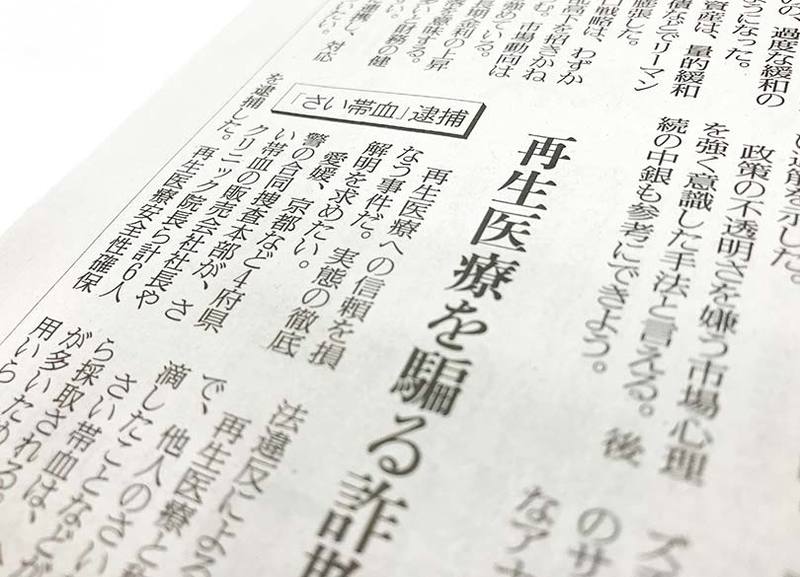 の、過度な緩和の
ようになった。
資産は、量的緩和
債などでリーマン
膨張した。
戦略は、わずか
乱高下を招きかね
む。市場動向は
強めている。
長期金利の上昇
を意味する。
財務の健
対応
を示した。
政策の不透明さを嫌う市場心理
を強く意識した手法と言える。後
続の中銀も参考にできよう。
のサ
なア
再生医療を騙る詐
「さい帯血」逮捕
再生医療への信頼を損
なう事件だ。実態の徹底
解明を求めたい。
愛媛、京都など4府県
警の合同捜査本部が、さ
い帯血の販売会社社長や
クリニック院長ら計6人
を逮捕した。
再生医療安全性確保
法違反による
再生医療と
で、他人のさい
滴したことなどが
さい帯血は、
ら採取され
が多いため
用いら